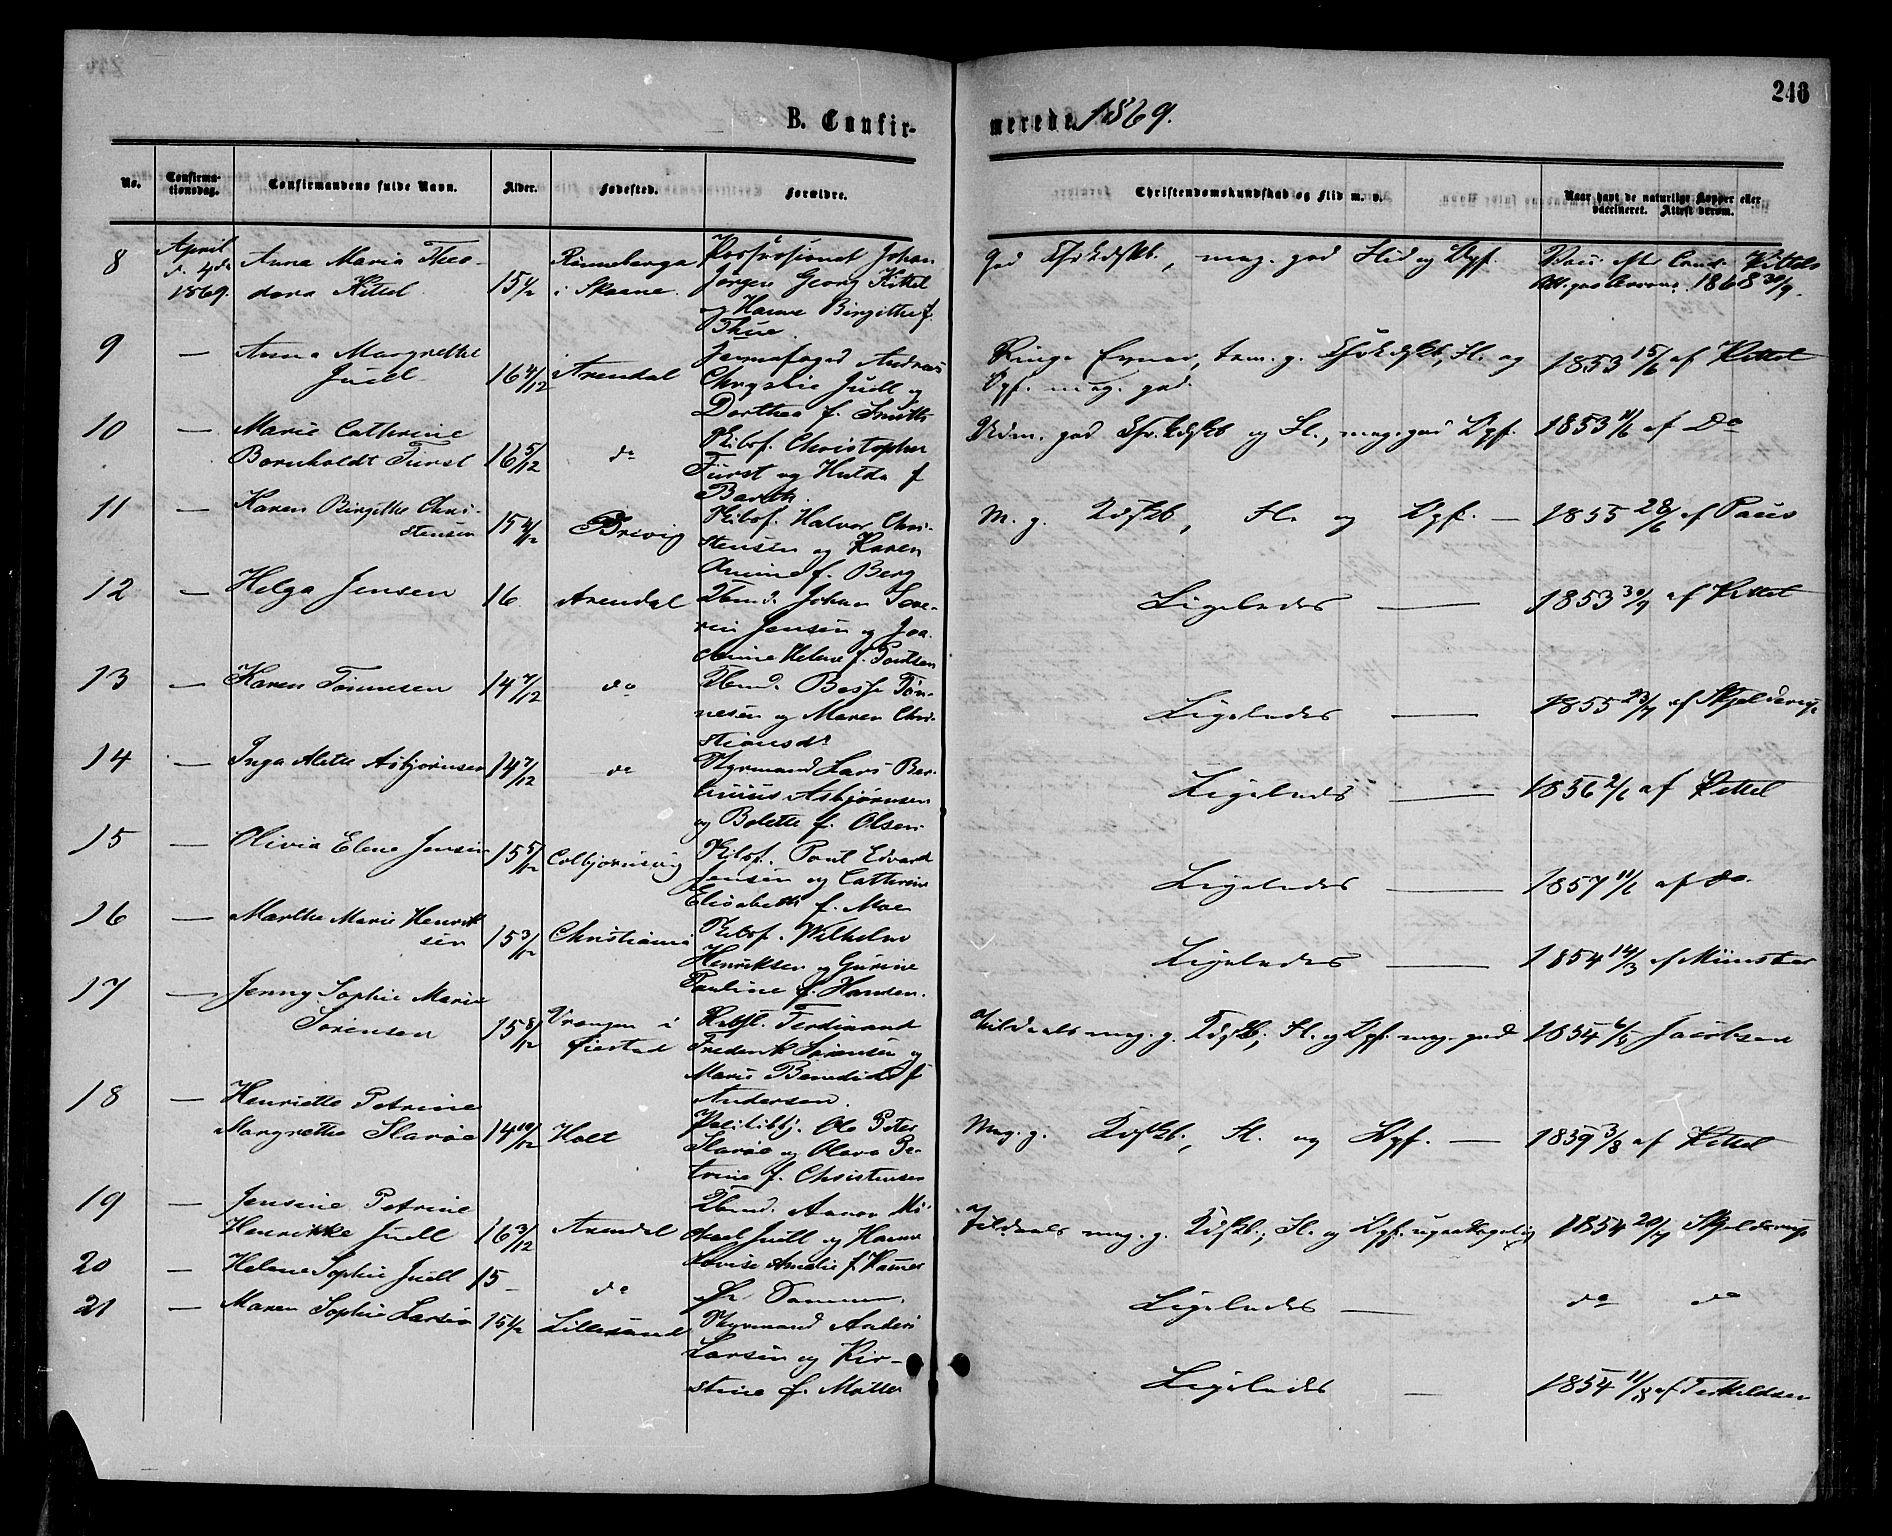 246
B. Confir-
merede 1869.
No.
Confirma-
tionsdag.
Confirmandens fulde Navn.
Alder.
Fødested.
Forældre.
Christendomskundskab og Flid m. v.
Naar havt de naturlige Kopper eller
vaccineret. Attest derom.
8
April
d. 4de
1869.
Anna Maria Theo-
dora Kittel
15 1/2
Rönneberga
i Skaane.
Johan
Jørgen Georg Kittel
og Hanne Birgitte f.
Thue.
God mag. god Flid og Opf.
Kittels
1868
9
—
Anna Margrethe
Juell
16 4/12
Arendal
Andreas
Chrystie Juell og
Dorthea f. Smith
Fl. og
Opf. mag. god.
1853 15/6 af Kittel
10
—
Marie Cathrine
Bornholdt Fürst
16 5/12
do
Skibsf. Christopher
Fürst og Hulda f
Barth.
Udm. god og Fl., mag. god Opf.
1853 11/6 af Do
11
—
Karen Birgitte Chri-
stensen
15 4/12
Brevig
Skibsf. Halvor Chri-
stensen og Karen
f. Berg
M. g. Kdskb, Fl. og Opf. —
1855 28/6 af Paus
12
—
Helga Jensen
16
Arendal
Tbmd. Johan Seve-
rin Jensen og Joa-
chime Helene f. Poulsen
Ligeledes —
1853 30/9 af Kittel
13
—
Karen Tønnesen
14 7/12
do
Tbmd. Tøn-
nesen og Maren Chri-
stiansdr
Ligeledes —
1855 23/7 af Skjelderup
14
—
Inga Alette Asbjørnsen
14 7/12
do
Styrmand Lars Ber-
Asbjørnsen
og Bolette f. Olsen
Ligeledes —
1856 2/6 af Kittel
15
—
Olivia Elene Jensen
15 5/12
Colbjørnsvig
Skibsf. Poul Edvard
Jensen og Cathrine
Elisabeth f. Moe
Ligeledes —
1857 11/6 af do.
16
—
Marthe Marie Henrik
sen
15 3/12
Christiania
Skibsf. Wilhelm
Henriksen og Gurine
Pauline f. Hansen.
Ligeledes —
1854 14/3 af Münster
17
—
Jenny Sophie Marie
Sørensen
15 8/12
Vrengen i
Øiestad
Ferdinand
Frederik Sørensen og
Marie Benedicte f
Andersen.
Tildeels mag. g. Kdskb, Fl. og Opf. mag. god
1854 Jacobsen
18
—
Henriette Petrine
Margrethe Slarøe
14 10/12
Holt
Politibtj. Ole Peter
Slarøe og Olava Pe-
trine f. Christensen
Mag. g. Kdskb., Fl. og Opf. —
1859 3/8 af Kittel
19
—
Jensine Petrine
Henrikke Juell
16 3/12
Arendal
Tbmd. Mi-
chael Juell og Hanne
Lovise Amalie f. Hammer
Tildeels mag. g. Kdskb.; Fl. og Opf. upaaklagelig
1854 20/7 Skjelderup
20
—
Helene Sophie Juell
15 —
do
De Samme.
Ligeledes —
do do
21
—
Maren Sophie Larsen
15 1/2
Lillesand
Styrmand Anders
Larsen og Kir-
stine f. Møller
Ligeledes —
1854 af Terkildsen